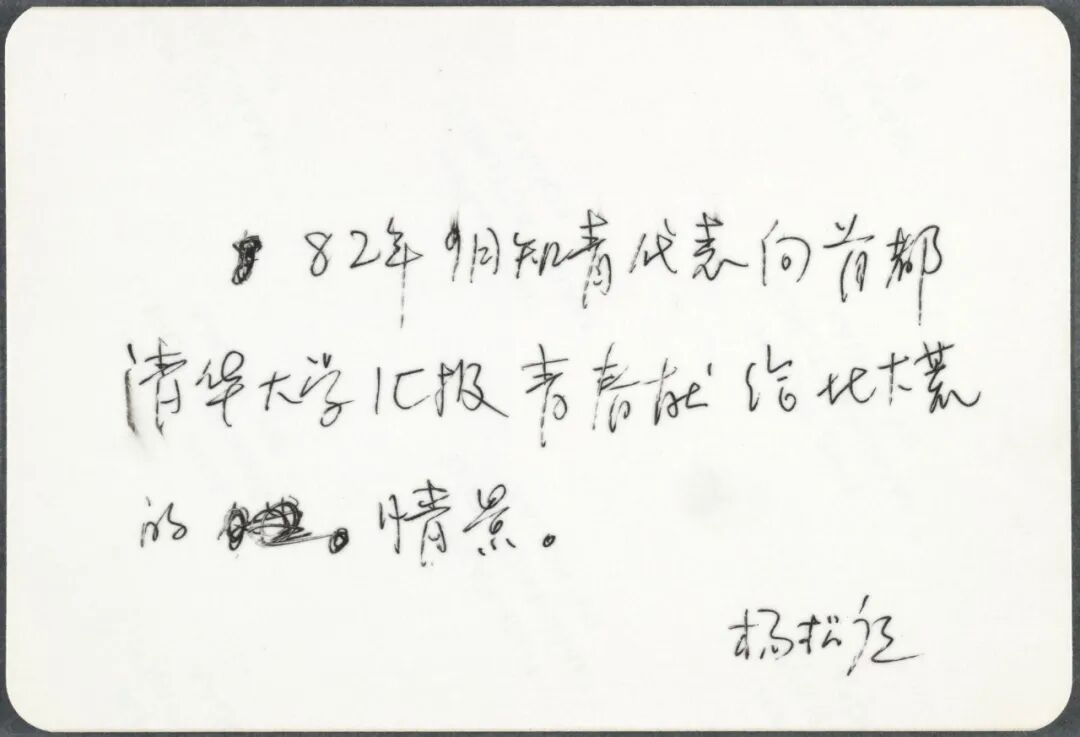 82年9月知青代表向首都
清华大学汇报青春献给北大荒
的情景。
杨松